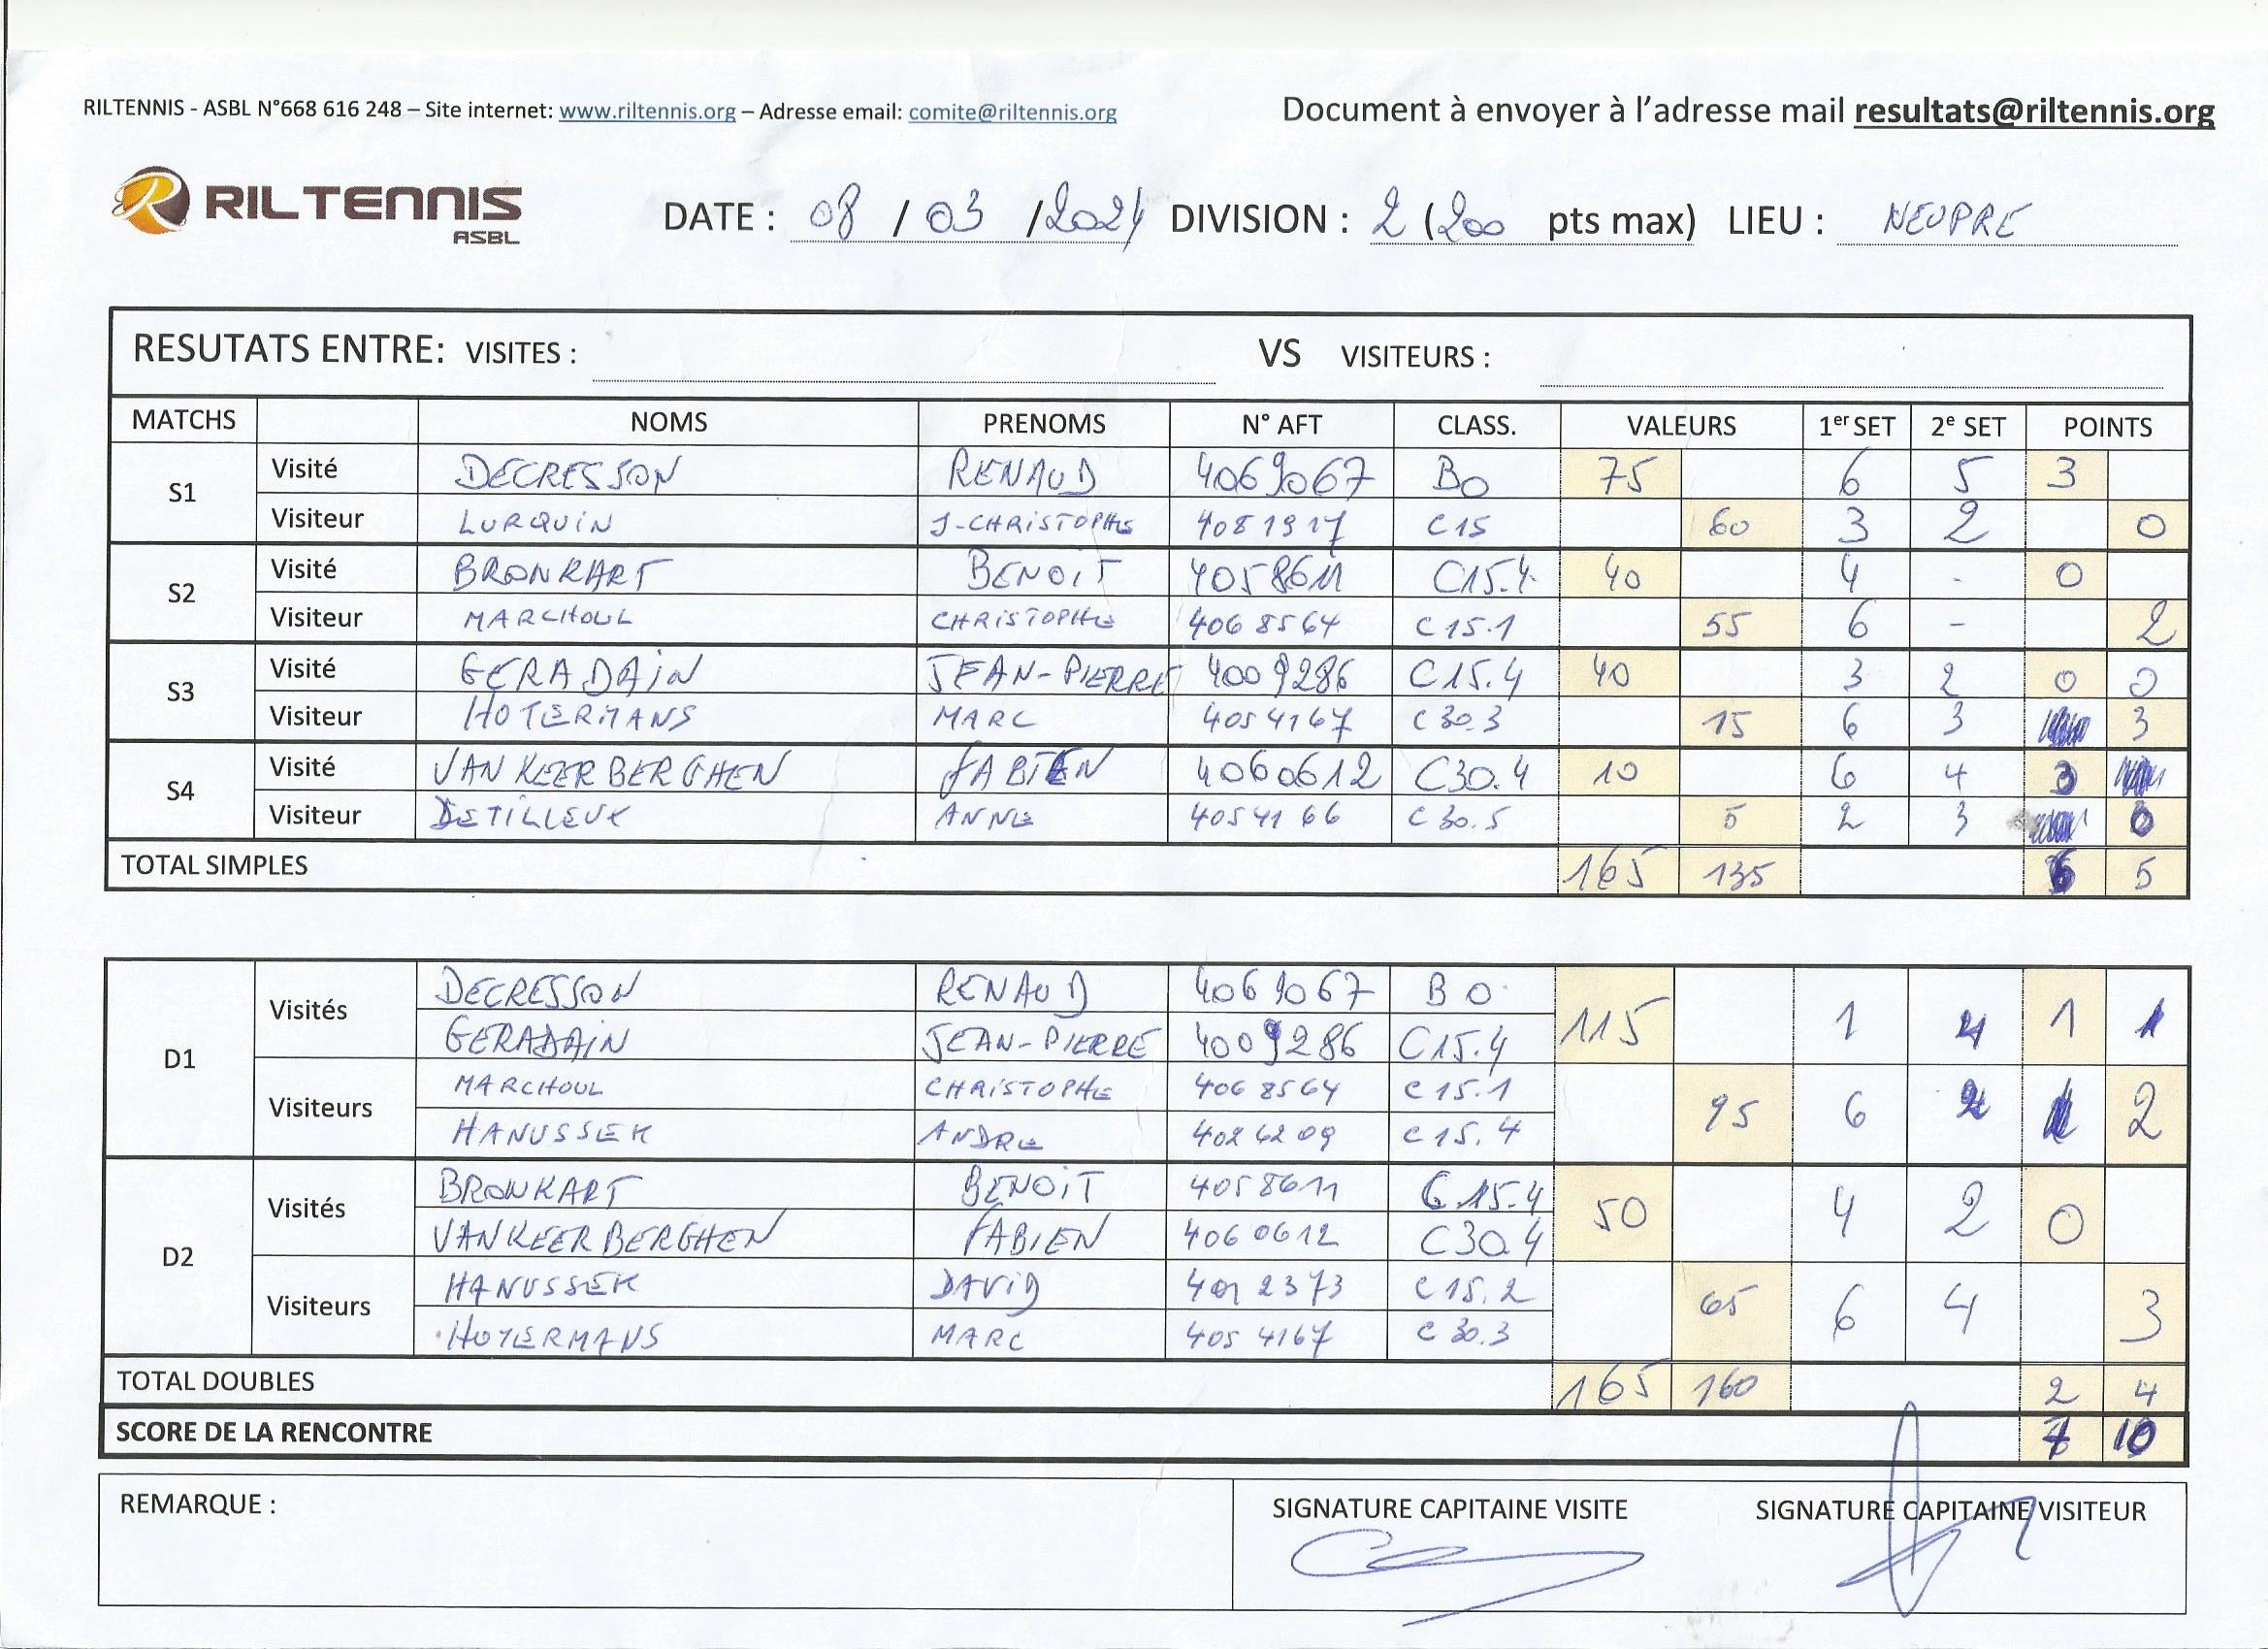 RILTENNIS - ASBL N°668 616 248 – Site internet: www.riltennis.org – Adresse email: comite@riltennis.org
Document à envoyer à l'adresse mail resultats@riltennis.org
RILTENNIS ASBL
DATE : 08 / 03 /2024 DIVISION : 2 (200 pts max) LIEU : NEUPRE
RESUTATS ENTRE: VISITES : VS VISITEURS :
MATCHS NOMS PRENOMS N° AFT CLASS. VALEURS 1er SET 2e SET POINTS
S1 Visité DECRESSON RENAUD 4069067 B0 75 6 5 3
Visiteur LURQUIN J-CHRISTOPHE 4081917 C15 60 3 2 0
S2 Visité BRONKART BENOIT 4058611 C15.4 40 4 - 0
Visiteur MARCHOUL CHRISTOPHE 4068564 C15.1 55 6 - 2
S3 Visité GERADAIN JEAN-PIERRE 4009286 C15.4 40 3 2 0 0
Visiteur HOTERMANS MARC 4054167 C30.3 15 6 3 3
S4 Visité VANKEERBERGHEN FABIEN 4060612 C30.4 10 6 4 3
Visiteur DETILLEUX ANNE 4054166 C30.5 5 2 3 0
TOTAL SIMPLES 165 135 5
D1 Visités DECRESSON RENAUD 4069067 B0 115 1 4 1 1
GERADAIN JEAN-PIERRE 4009286 C15.4
Visiteurs MARCHOUL CHRISTOPHE 4068564 C15.1 95 6 2 2
HANUSSEK ANDRE 4024209 C15.4
D2 Visités BRONKART BENOIT 4058611 C15.4 50 4 2 0
VANKEERBERGHEN FABIEN 4060612 C30.4
Visiteurs HANUSSEK DAVID 4012373 C15.2 65 6 4 3
HOTERMANS MARC 4054167 C30.3
TOTAL DOUBLES 165 160 2 4
SCORE DE LA RENCONTRE 7 10
REMARQUE : SIGNATURE CAPITAINE VISITE SIGNATURE CAPITAINE VISITEUR